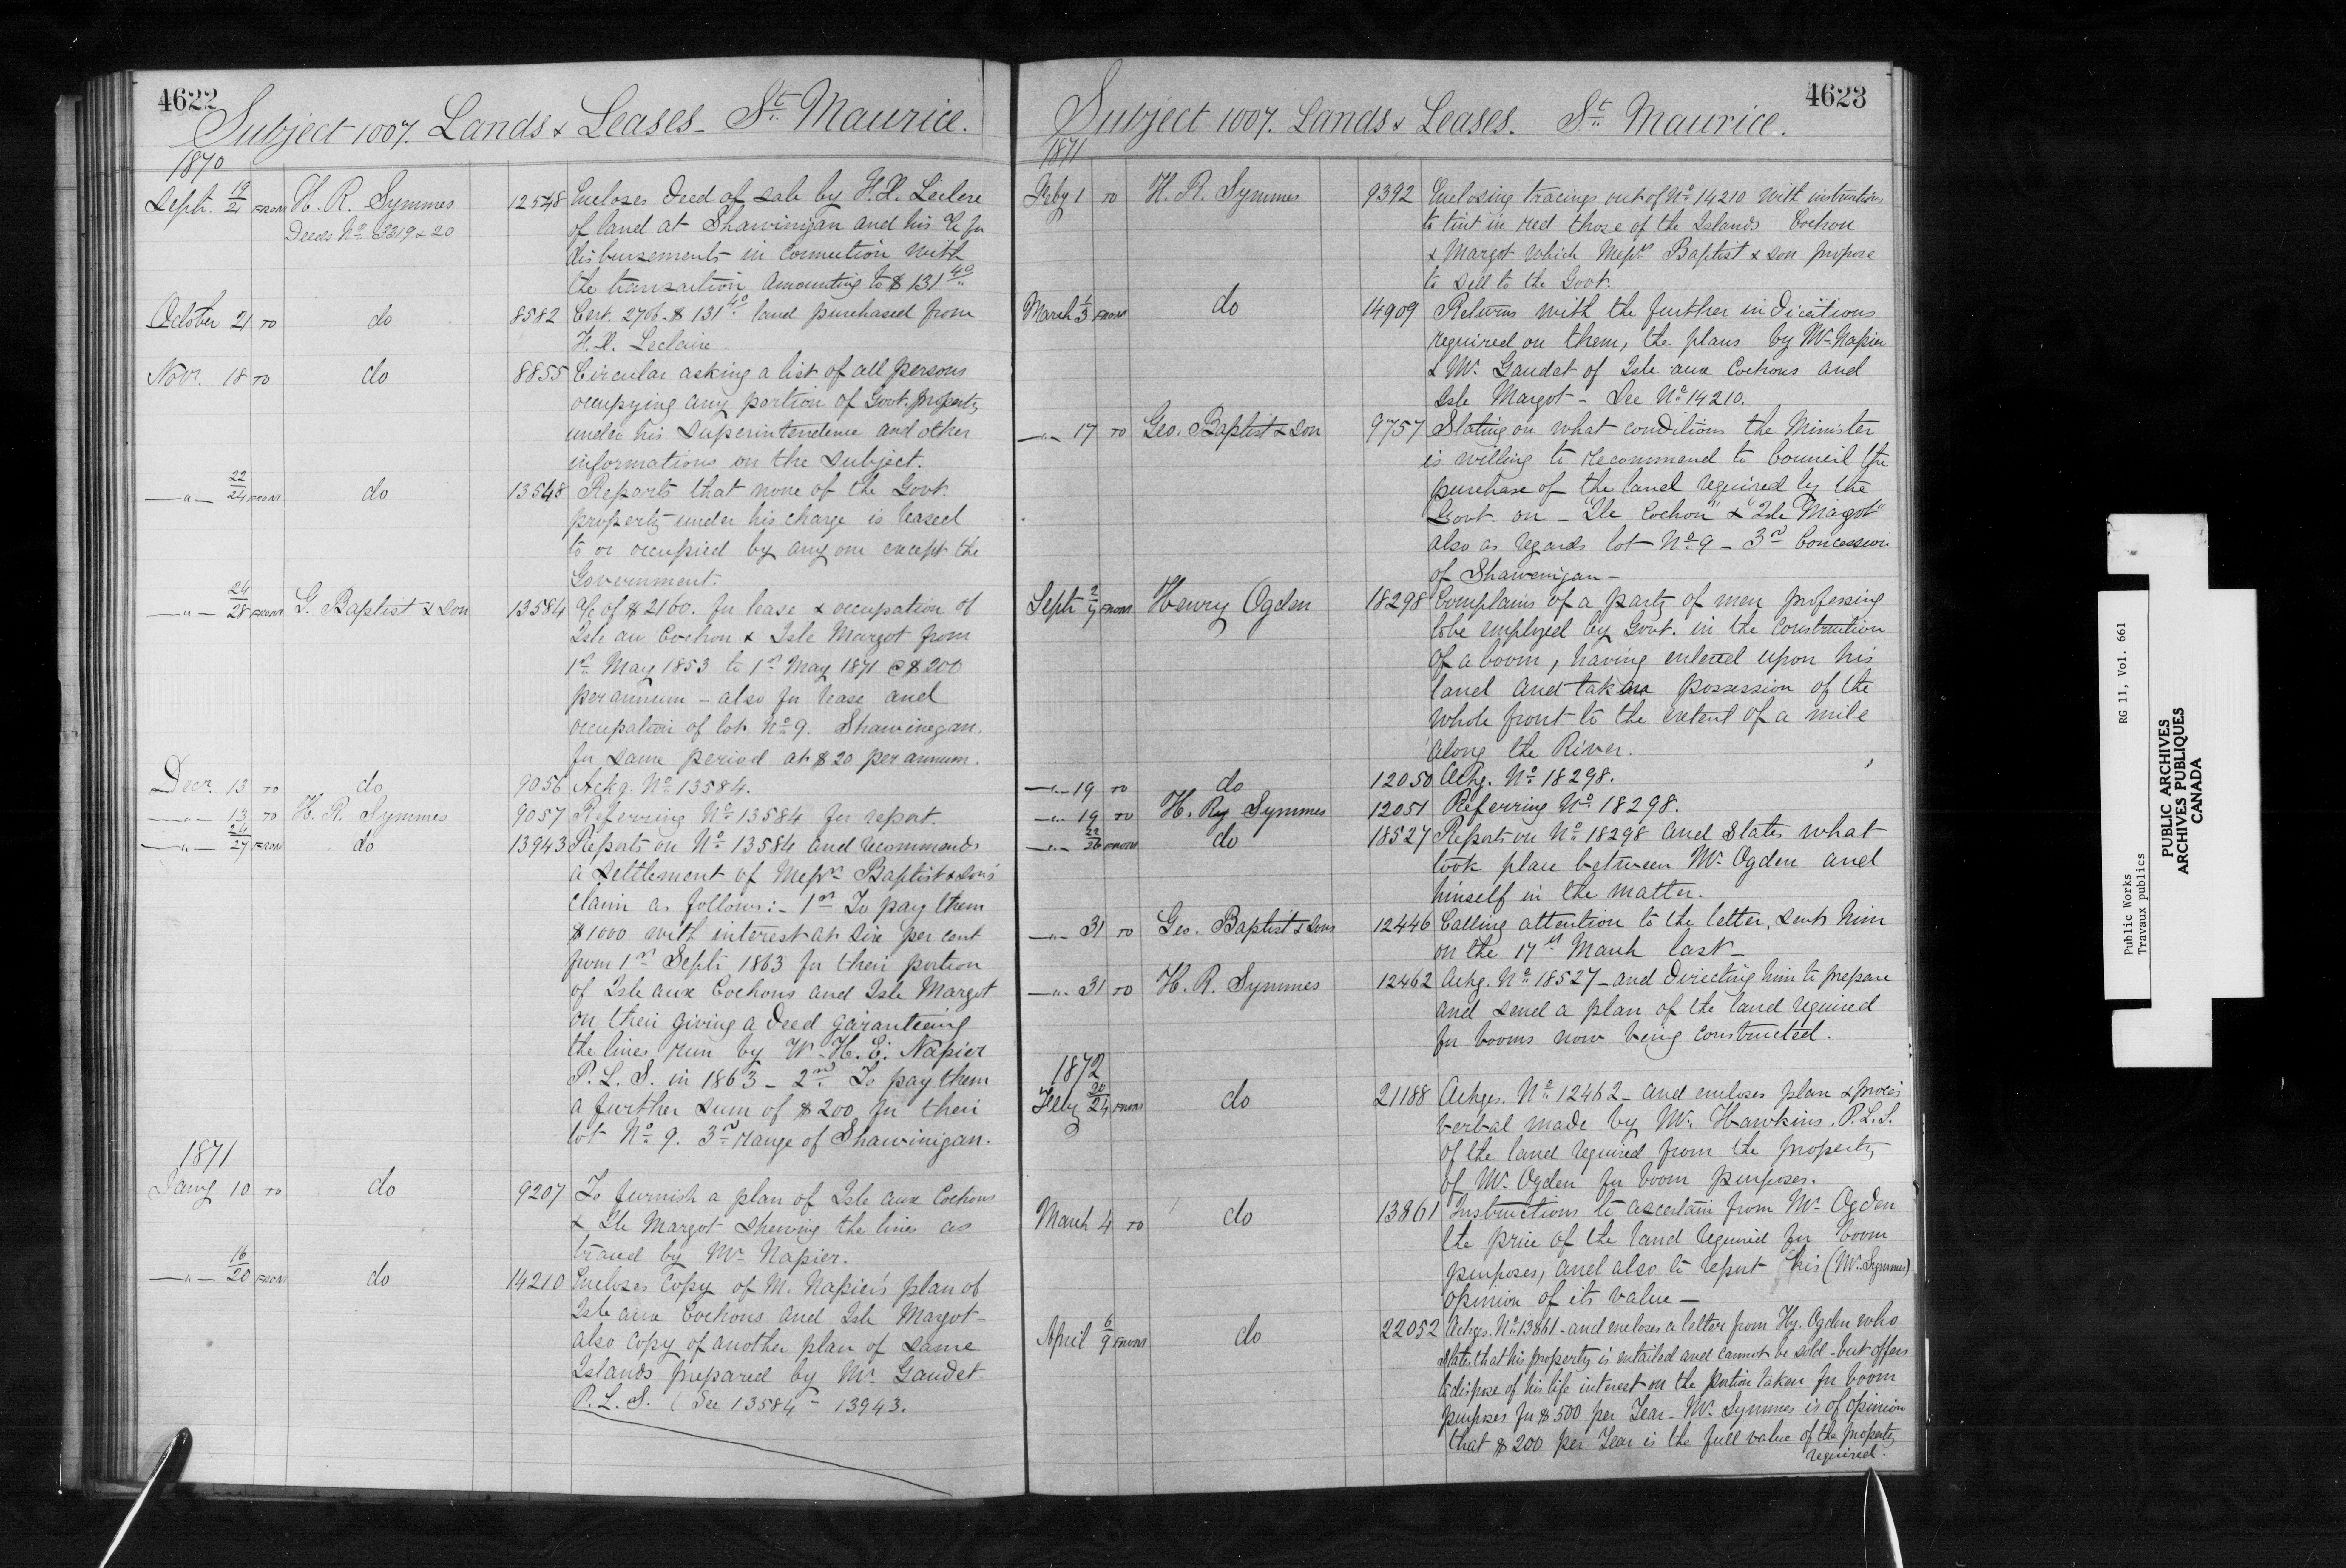 4622
Subject 1007. Lands & Leases - St. Maurice.
1870
Sept. 19/21 FROM H. R. Symmes 12548 Encloses Deed of sale by H. L. Leclere
Deeds No. 3319 & 20 of land at Shawinigan and his a/c for
disbursements in connection with
the transaction amounting to $131.40
October 21 TO do 8582 Cert. 2706 $131.40 land purchased from
H. L. Leclaire.
Novr. 18 TO do 8855 Circular asking a list of all persons
occupying any portion of Govt. property
under his superintendence and other
informations on the subject.
—"— 22/24 FROM do 13548 Reports that none of the Govt.
property under his charge is leased
to or occupied by any one except the
Government.
—"— 24/28 FROM G. Baptist & Son 13584 a/c of $2160. for lease & occupation of
Isle au Cochon & Isle Margot from
1st May 1853 to 1st May 1871 @ $200
per annum - also for lease and
occupation of lot No. 9. Shawinegan.
for same period at $20 per annum.
Decr. 13 TO do 9056 Ackg. No. 13584.
—"— 13 TO H. R. Symmes 9057 Referring No. 13584 for report.
—"— 24/27 FROM do 13943 Reports on No. 13584 and recommends
a settlement of Messrs Baptist & Sons'
claim as follows:- 1st To pay them
$1000 with interest at six per cent
from 1st Septr 1863 for their portion
of Isle aux Cochons and Isle Margot
on their giving a deed garanteeing
the lines run by W. H. E. Napier
P. L. S. in 1863 - 2nd. To pay them
a further sum of $200 for their
lot No. 9. 3rd range of Shawinigan.
1871
Jany 10 TO do 9207 To furnish a plan of Isle aux Cochons
& Ile Margot shewing the lines as
traced by Mr. Napier.
—"— 16/20 FROM do 14210 Encloses copy of M. Napier's plan of
Isle aux Cochons and Isle Margot -
also copy of another plan of same
Islands prepared by Mr. Gaudet
P. L. S. (See 13584 - 13943.
4623
Subject 1007. Lands & Leases. St. Maurice.
1871
Feby 1 TO H. R. Symmes 9392 Enclosing tracings out of No. 14210 with instructions
to tint in red those of the Islands Cochon
& Margot which Messrs Baptist & Son propose
to sell to the Govt.
March 1/3 FROM do 14909 Returns with the further indications
required on them, the plans by Mr. Napier
& Mr. Gaudet of Isle aux Cochons and
Isle Margot - See No. 14210.
—"— 17 TO Geo. Baptist & Son 9757 Stating on what conditions the Minister
is willing to recommend to Council the
purchase of the land required by the
Govt. on - "Ile Cochon" & "Isle Margot"
also as regards lot No. 9 - 3rd Concession
of Shawenigan -
Septr 2/7 FROM Henry Ogden 18298 Complains of a party of men professing
to be employed by Govt. in the construction
of a boom, having entered upon his
land and taken possession of the
whole front to the extent of a mile
along the River.
—"— 19 TO do 12050 Ackg. No. 18298.
—"— 19 TO H. Ry Symmes 12051 Referring No. 18298.
—"— 22/26 FROM do 18527 Reports on No. 18298 and states what
took place between Mr. Ogden and
himself in the matter.
—"— 31 TO Geo. Baptist & Sons 12446 Calling attention to the letter, sent him
on the 17th March last -
—"— 31 TO H. R. Symmes 12462 Ackg. No. 18527 - and directing him to prepare
and send a plan of the land required
for booms now being constructed.
1872
Feby 20/24 FROM do 21188 Ackges. No. 12462 - and encloses plan & procès
verbal made by Mr. Hawkins. P.L.S.
of the land required from the property
of Mr. Ogden for boom purposes.
March 4 TO do 13861 Instructions to ascertain from Mr. Ogden
the price of the land required for boom
purposes, and also to report his (Mr. Symmes)
opinion of its value -
April 6/9 FROM do 22052 Ackges. No. 13861 - and encloses a letter from Hy. Ogden who
states that his property is entailed and cannot be sold - but offers
to dispose of his life interest on the portion taken for boom
purposes for $500 per Year - Mr. Symmes is of opinion
that $200 per Year is the full value of the property
required.
Public Works RG 11, Vol. 661
Travaux publics
PUBLIC ARCHIVES
ARCHIVES PUBLIQUES
CANADA